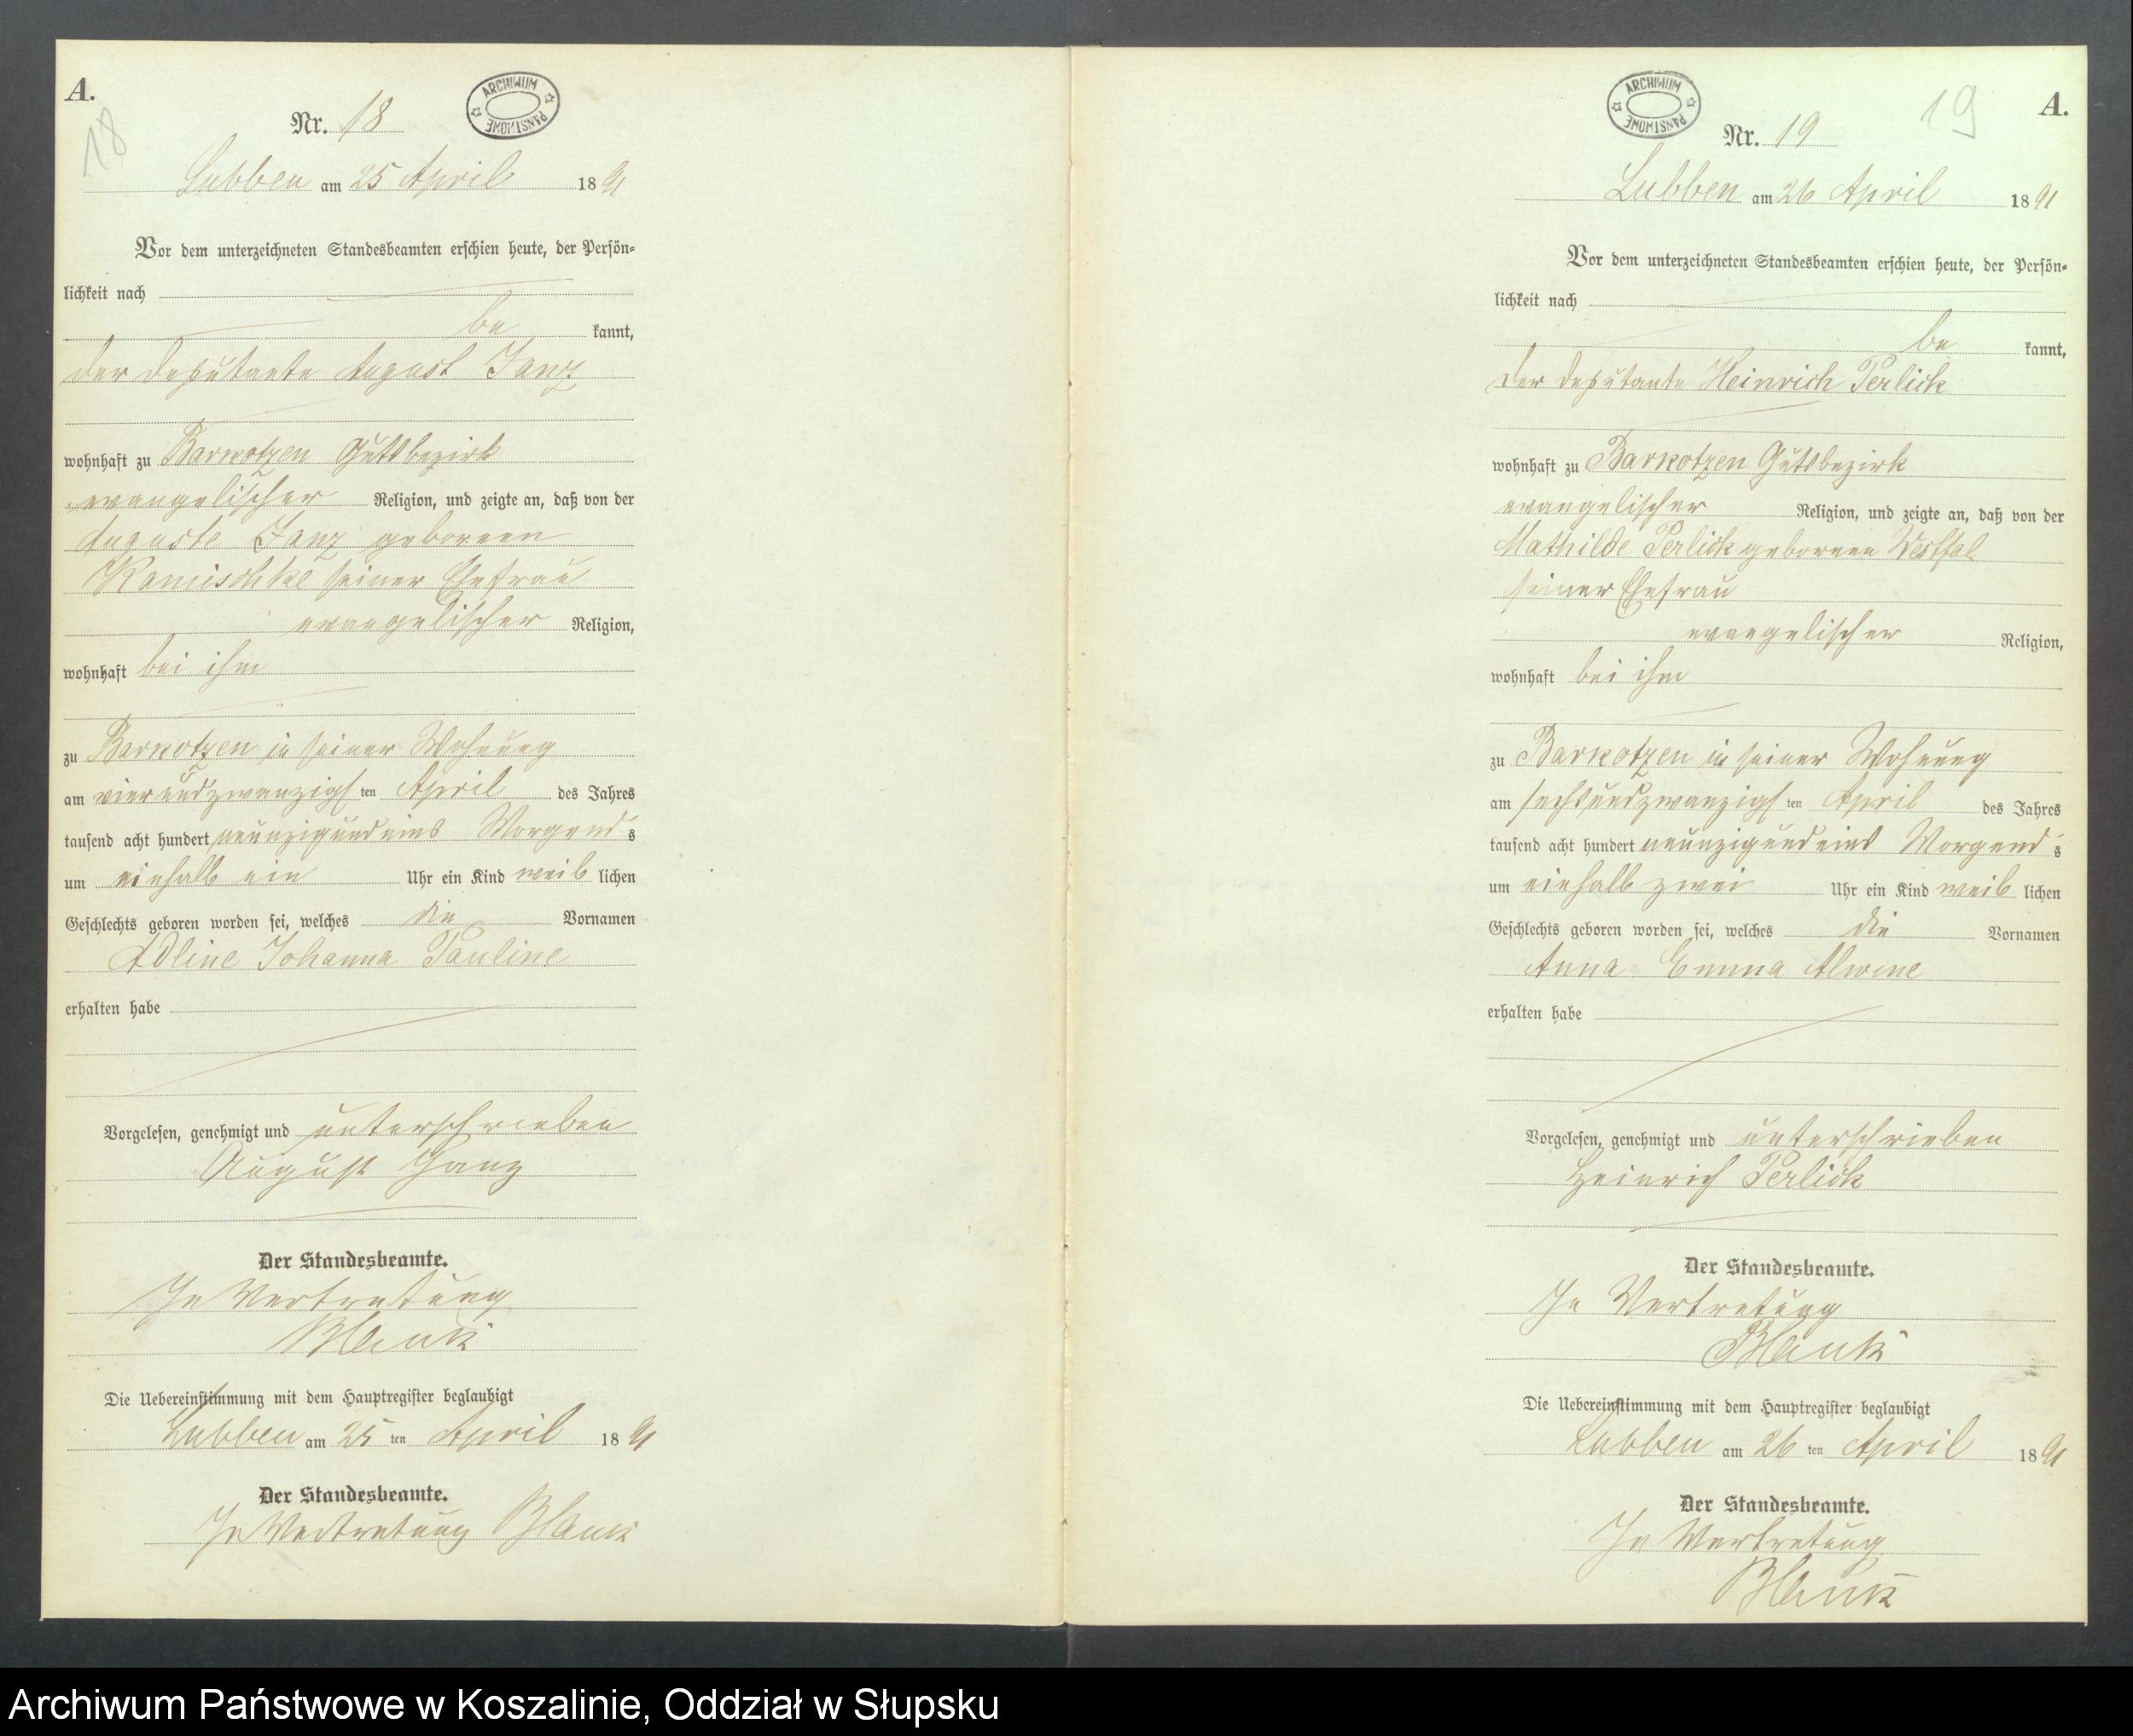 A.
18
ARCHIWUM PAŃSTWOWE
Nr. 18
Lubben am 25 April 1891
Vor dem unterzeichneten Standesbeamten erschien heute, der Persön-
lichkeit nach
be kannt,
der Deputante August Janz
wohnhaft zu Barkotzen Gutsbezirk
evangelischer Religion, und zeigte an, daß von der
Auguste Janz geborenen
Kamischke seiner Ehefrau
evangelischer Religion,
wohnhaft bei ihm
zu Barkotzen in seiner Wohnung
am vierundzwanzigsten April des Jahres
tausend acht hundert neunzigundeins Morgends
um einhalb ein Uhr ein Kind weiblichen
Geschlechts geboren worden sei, welches die Vornamen
Adline Johanna Pauline
erhalten habe
Vorgelesen, genehmigt und unterschrieben
August Janz
Der Standesbeamte.
In Vertretung
Blank
Die Uebereinstimmung mit dem Hauptregister beglaubigt
Lubben am 25 ten April 1891
Der Standesbeamte.
In Vertretung Blank
A.
19
ARCHIWUM PAŃSTWOWE
Nr. 19
Lubben am 26 April 1891
Vor dem unterzeichneten Standesbeamten erschien heute, der Persön-
lichkeit nach
be kannt,
der Deputante Heinrich Perlick
wohnhaft zu Barkotzen Gutsbezirk
evangelischer Religion, und zeigte an, daß von der
Mathilde Perlick geborenen Westfal
seiner Ehefrau
evangelischer Religion,
wohnhaft bei ihm
zu Barkotzen in seiner Wohnung
am sechsundzwanzigsten April des Jahres
tausend acht hundert neunzigundeins Morgends
um einhalb zwei Uhr ein Kind weiblichen
Geschlechts geboren worden sei, welches die Vornamen
Anna Emma Alwine
erhalten habe
Vorgelesen, genehmigt und unterschrieben
Heinrich Perlick
Der Standesbeamte.
In Vertretung
Blank
Die Uebereinstimmung mit dem Hauptregister beglaubigt
Lubben am 26 ten April 1891
Der Standesbeamte.
In Vertretung
Blank
Archiwum Państwowe w Koszalinie, Oddział w Słupsku